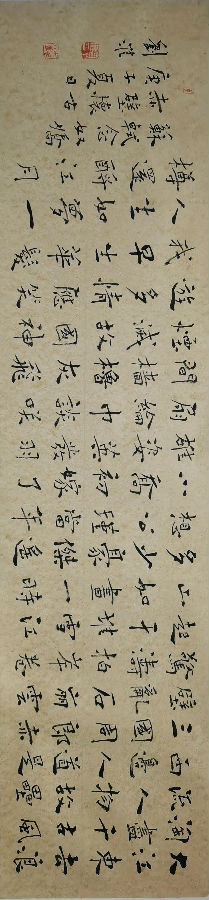 大江東去浪
淘盡千古風
流人物故壘
西邊人道是
三國周郎赤
壁亂石崩雲
驚濤拍岸卷
起千堆雪江
山如畫一時
多少豪傑遙
想公瑾當年
小喬初嫁了
雄姿英發羽
扇綸巾談笑
間檣櫓灰飛
煙滅故國神
遊多情應笑
我早生華髮
人生如夢一
樽還酹江月
蘇軾念奴嬌
赤壁懷古
庚子夏日
劉淮